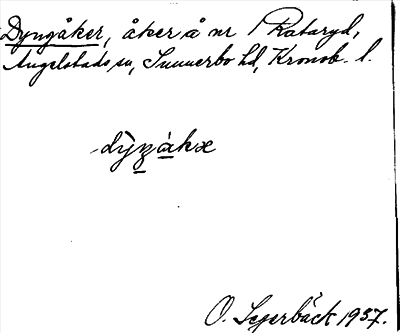 Dyngåker, åker å nr 1 Rataryd,
Angelstads sn, Sunnerbo hd, Kronob. l.
O. Segerbäck 1937.